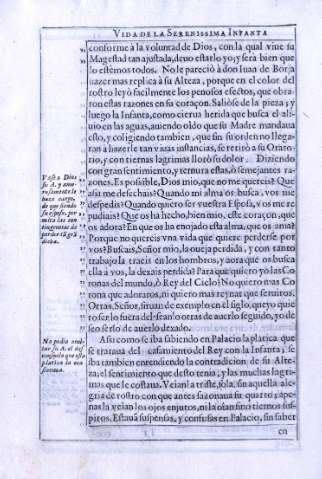 VIDA DE LA SERENISSIMA INFANTA
conforme à la voluntad de Dios, con la qual viue su
Magestad tan ajustada, deuo estarlo yo; y serà bien que
lo estèmos todos. No le pareciò à don Iuan de Borja
hazer mas replicas à su Alteza, porque en el color del
rostro leyò facilmente los penosos efectos, que obra-
ron estas razones en su coraçon. Saliòse de la pieza; y
luego la Infanta, como cierua herida que busca el ali-
uio en las aguas, auiendo oìdo que su Madre mandaua
esto, y coligiendo tambien, que sin su orden no llega-
ran à hazerle tan viuas instancias, se retirò à su Orato-
rio, y con tiernas lagrimas llorò su dolor. Diziendo
con gran sentimiento, y ternura estas, ò semejantes ra-
zones. Es possible, Dios mio, que no me quereis? Que
assi me desechais? Quando mi alma os busca, vos me
despedis? Quando quiero ser vuestra Esposa, vos me re-
pudiais? Que os ha hecho, bien mio, este coraçon, que
os adora? En que os ha enojado esta alma, que os ama?
Porque no quereis vna vida que quiere perderse por
vos? Buscais, Señor mio, la oueja perdida, y con tanto
trabajo la traeis en los hombros, y aora que os busca
ella à vos, la dexais perdida? Para que quiero yo las Co-
ronas del mundo, ò Rey del Cielo? No quiero mas Co-
rona que adoraros, ni quiero mas reynar que seruiros.
Otras, Señor, siruan de exemplo en el siglo, que yo quie-
ro ser lo fuera del: seanlo otras de auerlo seguido, yo de-
seo serlo de auerlo dexado.
Assi como se iba sabiendo en Palacio la platica que
se trataua del casamiento del Rey con la Infanta; se
iba tambien entendiendo la contradicion de su Alte-
za; el sentimiento que desto tenia, y las muchas lagri-
mas que le costaua. Veianla triste, sola, sin aquella ale-
gria de rostro con que antes sazonaua su quarto; ape-
nas la veian los ojos enjutos, ni la oìan sino tiernos sus-
piros. Estauã suspensas, y confusas en Palacio, sin saber
en
Vase à Dios
su A. y amo-
rosamente le
haze cargo,
de que siendo
su esposo, per-
mita las con-
tingencias de
No podia